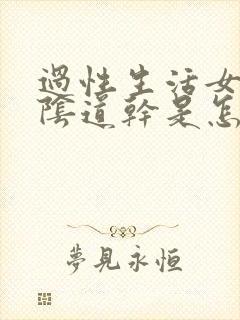 過性生活女
陰道幹是怎
夢見永恒